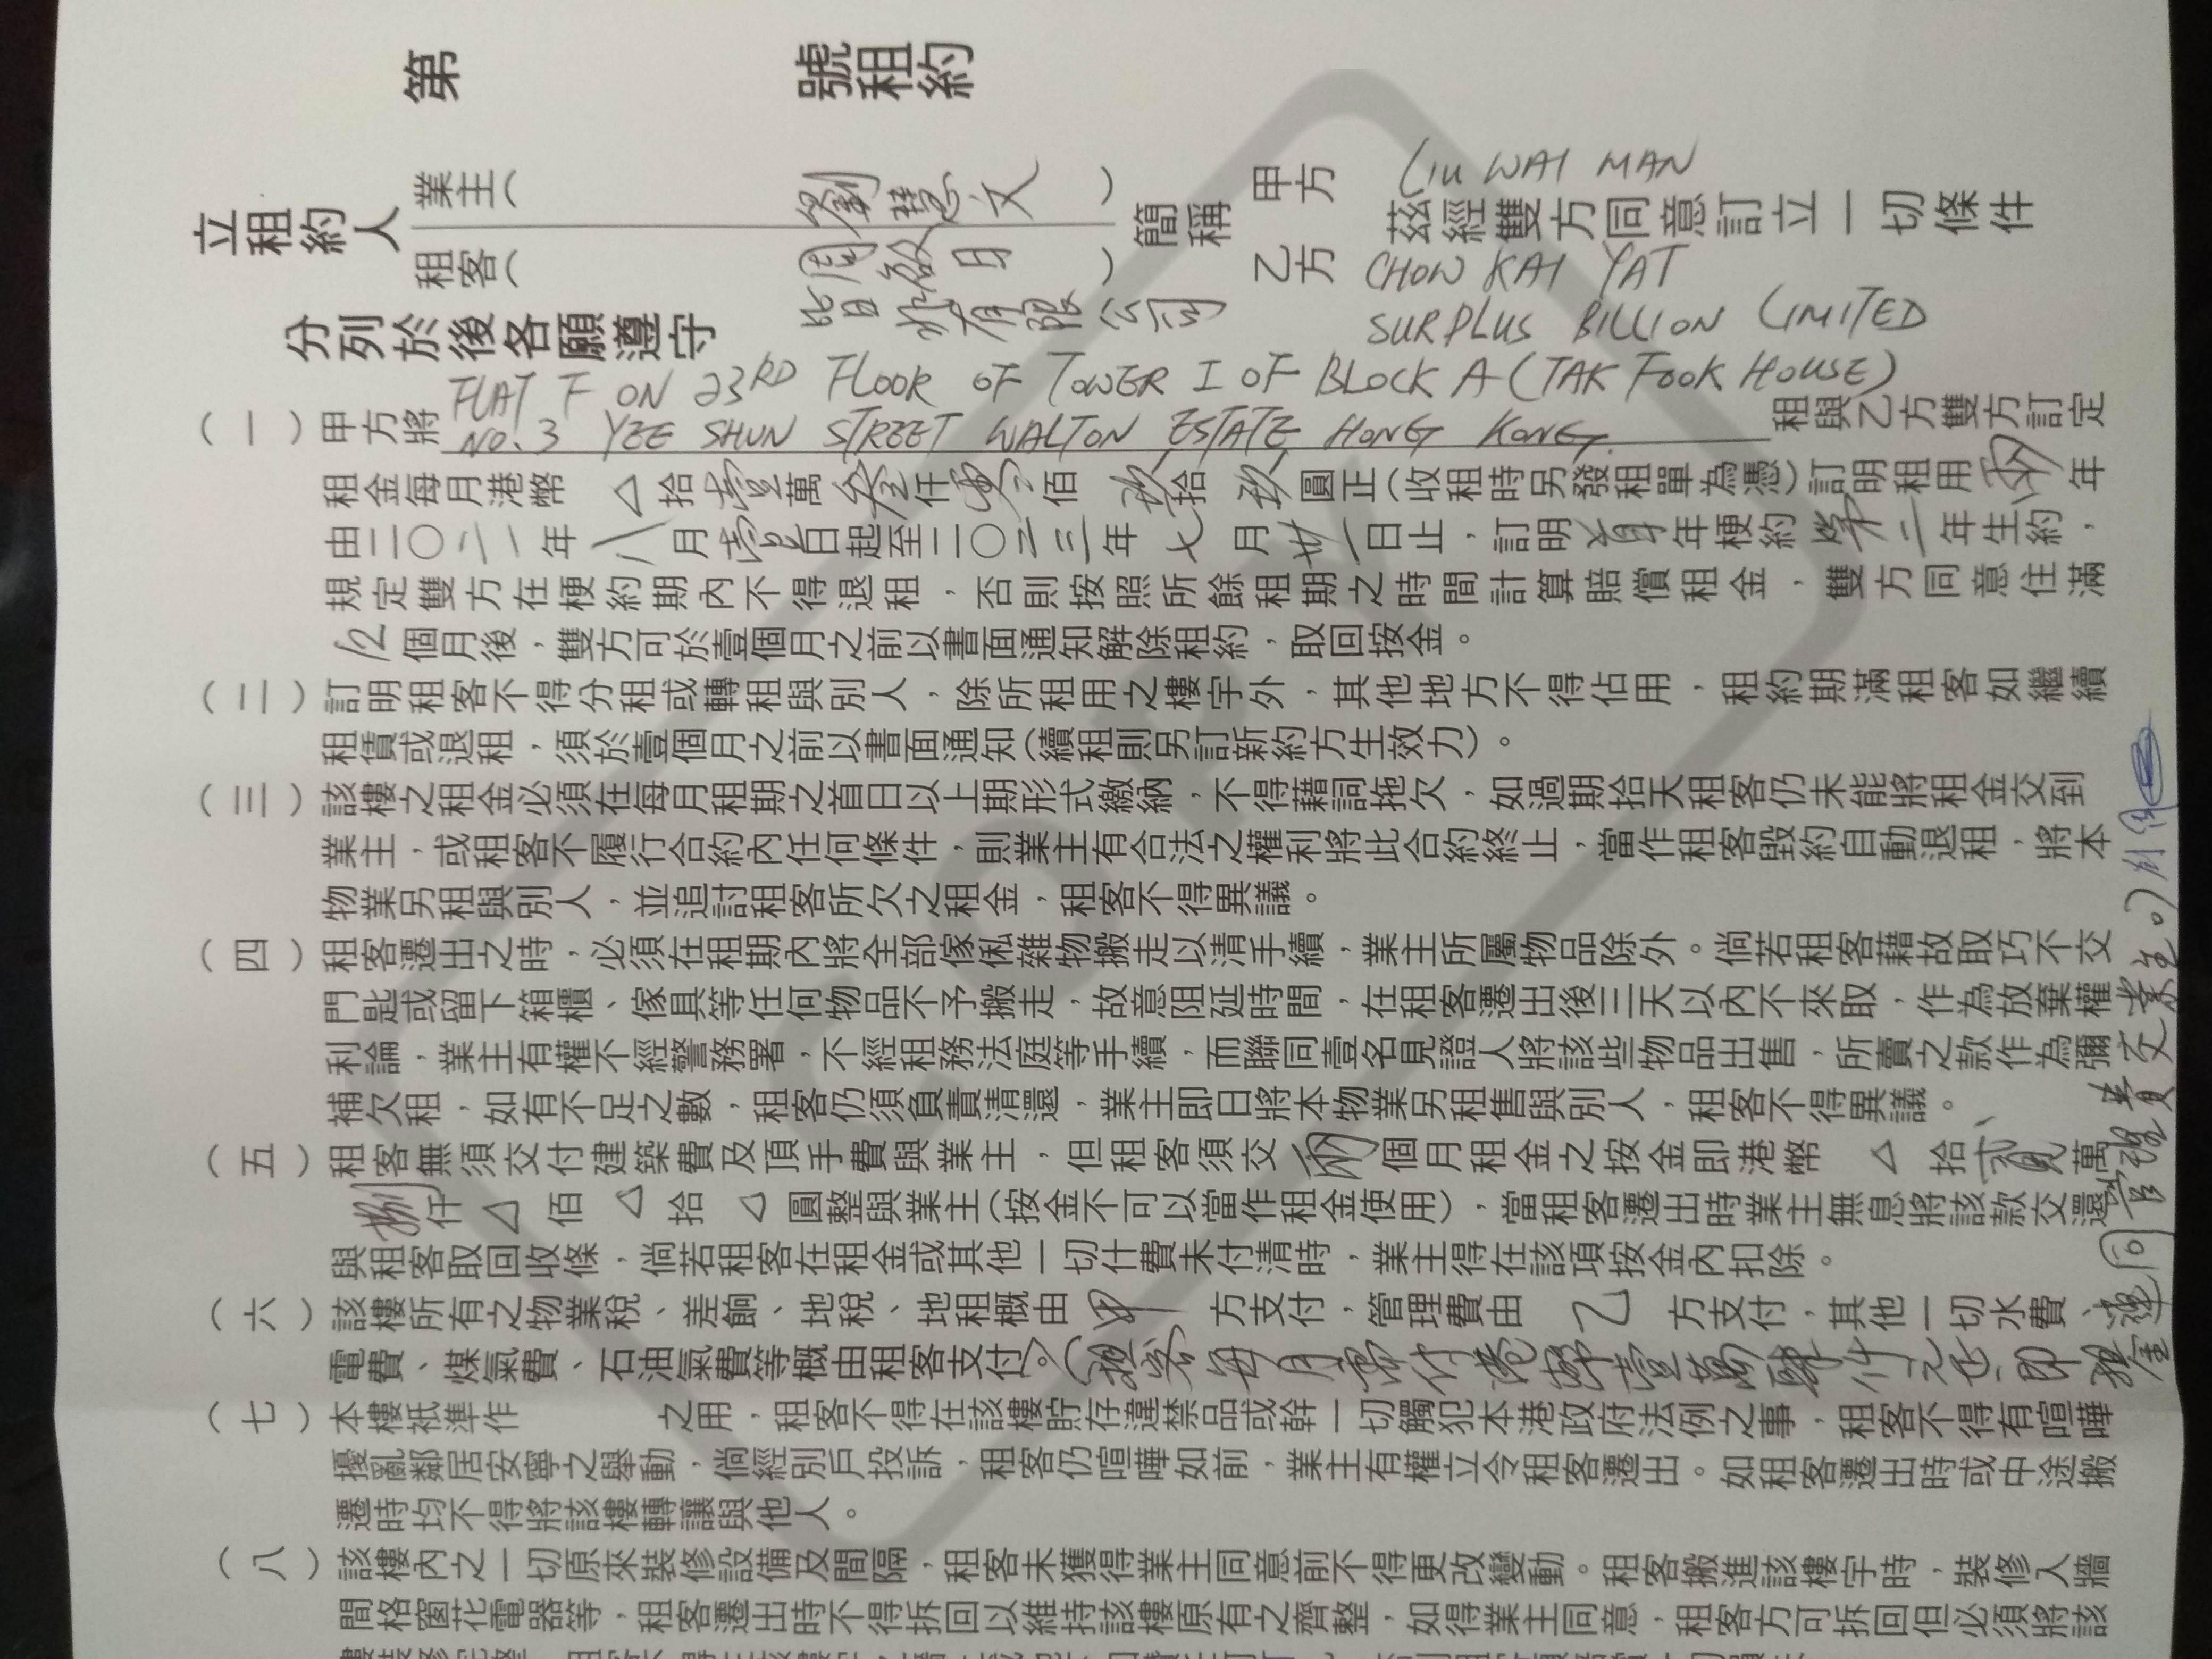 第 號租約
立租約人 業主( 劉慧文 ) 簡稱 甲方 LIU WAI MAN
茲經雙方同意訂立一切條件
租客( 周啟日 ) 乙方 CHOW KAI YAT
皆 有限公司 SURPLUS BILLION LIMITED
分列於後各願遵守
FLAT F ON 23RD FLOOR OF TOWER I OF BLOCK A (TAK FOOK HOUSE)
(一)甲方將 NO. 3 YEE SHUN STREET WALTON ESTATE, HONG KONG. 租與乙方雙方訂定
租金每月港幣 △ 拾壹萬叁仟 佰玖拾玖圓正(收租時另發租單為憑)訂明租用兩年
由二〇二一年八月壹日起至二〇二三年七月卅一日止,訂明首年年梗約第二年生約,
規定雙方在梗約期內不得退租,否則按照所餘租期之時間計算賠償租金,雙方同意住滿
12個月後,雙方可於壹個月之前以書面通知解除租約,取回按金。
(二)訂明租客不得分租或轉租與別人,除所租用之樓宇外,其他地方不得佔用,租約期滿租客如繼續
租賃或退租,須於壹個月之前以書面通知(續租則另訂新約方生效力)。
(三)該樓之租金必須在每月租期之首日以上期形式繳納,不得藉詞拖欠,如過期拾天租客仍未能將租金交到
業主,或租客不履行合約內任何條件,則業主有合法之權利將此合約終止,當作租客毀約自動退租,將本
物業另租與別人,並追討租客所欠之租金,租客不得異議。
(四)租客遷出之時,必須在租期內將全部傢俬雜物搬走以清手續,業主所屬物品除外。倘若租客藉故取巧不交
門匙或留下箱櫃、傢具等任何物品不予搬走,故意阻延時間,在租客遷出後三天以內不來取,作為放棄權
利論,業主有權不經警務署,不經租務法庭等手續,而聯同壹名見證人將該些物品出售,所賣之款作為彌
補欠租,如有不足之數,租客仍須負責清還,業主即日將本物業另租售與別人,租客不得異議。
(五)租客無須交付建築費及頂手費與業主,但租客須交兩個月租金之按金即港幣 △ 拾貳萬
捌仟 △ 佰 △ 拾 △ 圓整與業主(按金不可以當作租金使用),當租客遷出時業主無息將該款交還
與租客取回收條,倘若租客在租金或其他一切什費未付清時,業主得在該項按金內扣除。
(六)該樓所有之物業稅、差餉、地稅、地租概由 甲 方支付,管理費由 乙 方支付,其他一切水費、
電費、煤氣費、石油氣費等概由租客支付。(租客每月需付港幣壹萬肆仟元正即租金
連同管理費交業主。)
(七)本樓祇準作 之用,租客不得在該樓貯存違禁品或幹一切觸犯本港政府法例之事,租客不得有喧嘩
擾亂鄰居安寧之舉動,倘經別戶投訴,租客仍喧嘩如前,業主有權立令租客遷出。如租客遷出時或中途搬
遷時均不得將該樓轉讓與他人。
(八)該樓內之一切原來裝修設備及間隔,租客未獲得業主同意前不得更改變動。租客搬進該樓宇時,裝修入牆
間格窗花電器等,租客遷出時不得拆回以維持該樓原有之齊整,如得業主同意,租客方可拆回但必須將該
COPY